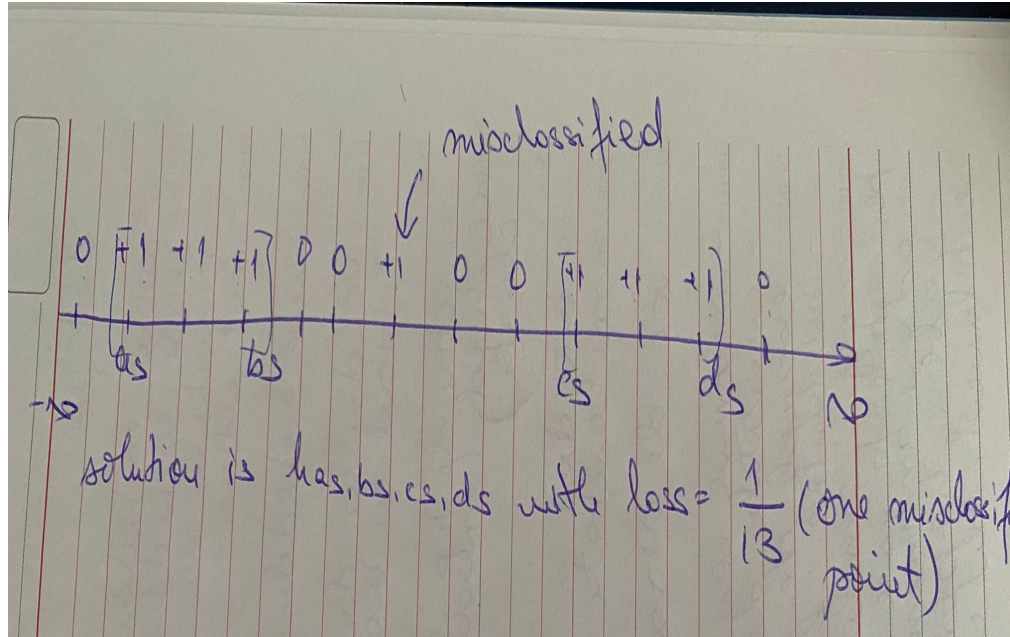 misclossified
0 [+1 +1 +1] 0 0 +1 0 0 [+1 +1 +1] 0
as bs cs ds
-∞ ∞
solution is has,bs,cs,ds with loss= 1/13 (one misclossif
point)